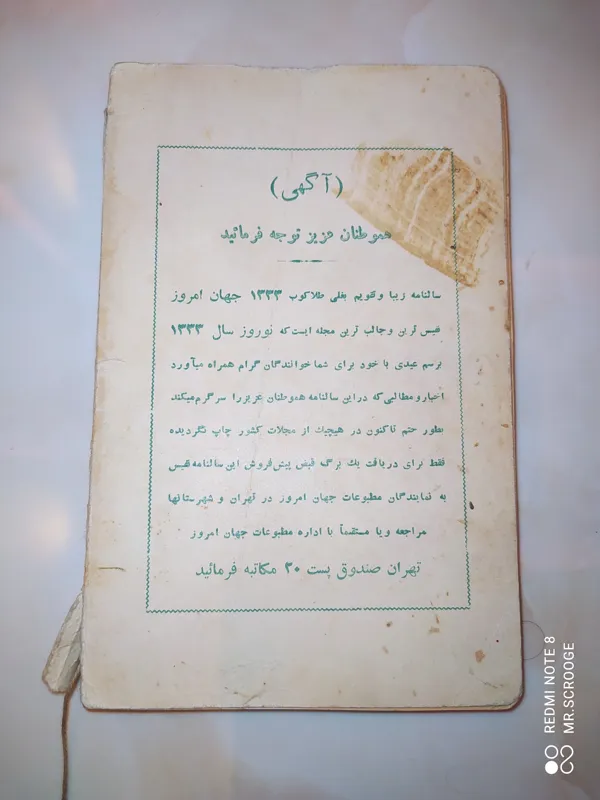 (آگهی)
هموطنان عزیز توجه فرمائید
سالنامه زیبا و تقویم بغلی طلاکوب ۱۳۳۳ جهان امروز
نفیس ترین و جالب ترین مجله ایست که نوروز سال ۱۳۳۳
برسم عیدی با خود برای شما خوانندگان گرام همراه میآورد
اخبار و مطالبی که در این سالنامه هموطنان عزیز را سرگرم میکند
بطور حتم تاکنون در هیچیك از مجلات کشور چاپ نگردیده
فقط برای دریافت یك برگ قبض پیش فروش این سالنامه نفیس
به نمایندگان مطبوعات جهان امروز در تهران و شهرستانها
مراجعه و یا مستقیماً با اداره مطبوعات جهان امروز
تهران صندوق پست ۲۰ مکاتبه فرمائید
REDMI NOTE 8
MR.SCROOGE